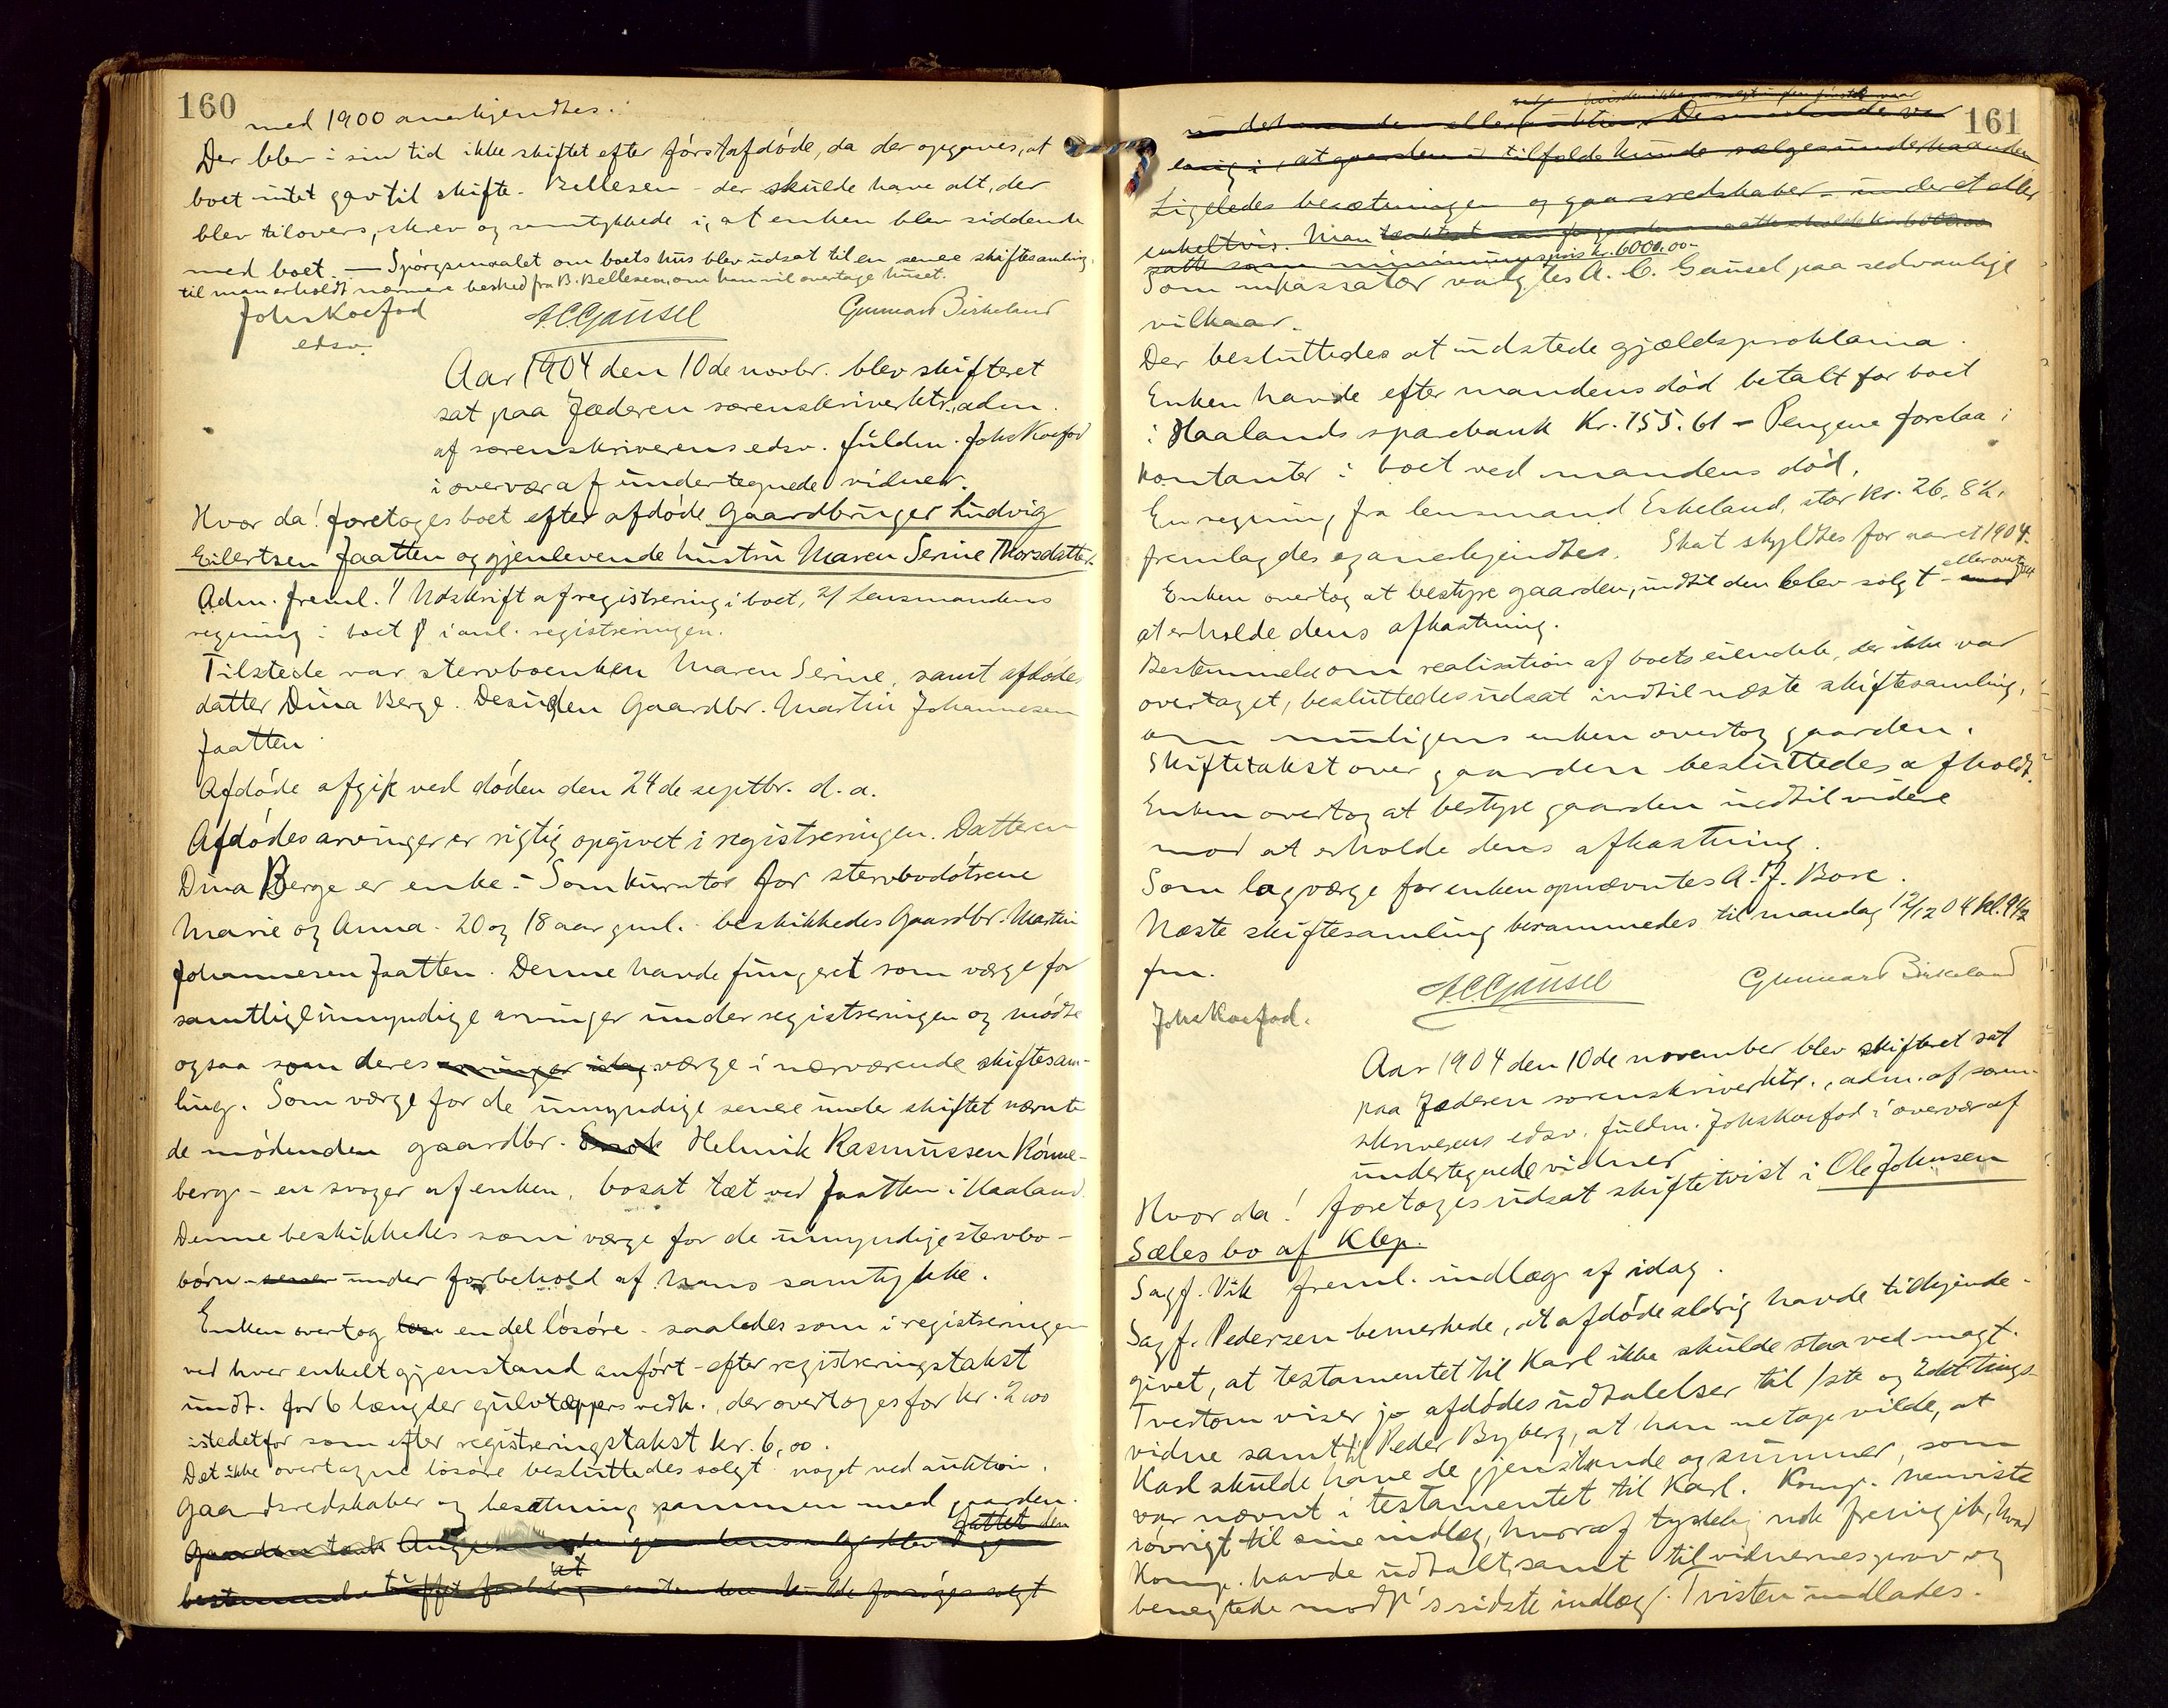 160
med 1900 anerkjendtes.
Der blev i sin tid ikke skiftet efter førstafdøde, da der opgaves, at
boet intet gav til skifte. Bellesen - der skulde have alt, der
blev tilovers, skrev og samtykkede i, at enken blev siddende
med boet. — Spørgsmaalet om boets hus blev udsat til en senere skiftesamling,
til man erholdt nærmere besked fra B. Bellesen, om han vil overtage huset.
Johs Koefod
edsv.
A C Gausel
Gunnar Birkeland
Aar 1904 den 10de novbr. blev skifteret
sat paa Jæderen sorenskriverktr., adm.
af sorenskriverens edsv. fuldm. Johs Koefod
i overvær af undertegnede vidner.
Hvor da! foretoges boet efter afdøde gaardbruger Ludvig
Eilertsen Jaatten og gjenlevende hustru Maren Serine Thorsdatter.
Adm. freml. 1/ Udskrift af registrering i boet, 2/ Lensmandens
regning i boet i anl. registreringen.
Tilstede var stervboenken Maren Serine, samt afdødes
datter Dina Berge. Desuden Gaardbr. Martin Johannesen
Jaatten.
Afdøde afgik ved døden den 24de septbr. d. a.
Afdødes arvinger er rigtig opgivet i registreringen. Datteren
Dina Berge er enke. - Som kurator for stervbodøtrene
Marie og Anna - 20 og 18 aar gml. - beskikkedes Gaardbr. Martin
Johannesen Jaatten. Denne havde fungeret som værge for
samtlige umyndige arvinger under registreringen og mødte
ogsaa som deres arvinger idag værge i nærværende skiftesam-
ling. Som værge for de umyndige senere under skiftet nævnte
de mødenden gaardbr. Helmik Rasmussen Rønne-
berg - en svoger af enken, bosat tæt ved Jaatten i Haaland.
Denne beskikkedes som værge for de umyndige stervbo-
børn under forbehold af hans samtykke.
Enken overtog en del løsøre - saaledes som i registreringen
ved hver enkelt gjenstand anført - efter registreringstakst
undt. for 6 længder gulvtæppers vedk., der overtoges for kr. 2,00
istedetfor som efter registreringstakst kr. 6,00.
Det ikke overtagne løsøre besluttedes solgt noget ved auktion.
Gaardsredskaber og besætning sammen med gaarden.
fattet den
Gaarden
at
bestemmelse foreløbig skulde forsøges solgt
161
underhaanden eller auktion. De mødende var
enig i, at gaarden i tilfælde kunde sælges underhaanden
Ligeledes besætningen og gaarsredskaber - under et eller
enkeltvis. Man
satte som minimumspris kr. 6000.00
Som inkassator valgtes A. C. Gausel paa sedvanlige
vilkaar.
Der besluttedes at udstede gjældsproklama.
Enken havde efter mandens død betalt for boet
i Haalands sparebank Kr. 155.61 - Pengene forelaa i
kontanter i boet ved mandens død.
En regning fra lensmand Eskeland, stor kr. 26.84,
fremlagdes og anerkjendtes. Skat skyldtes for aaret 1904.
Enken overtog at bestyre gaarden, indtil den blev solgt - eller overtaget mod
at erholde dens afkastning.
Bestemmelse om realisation af boets eiendele, der ikke var
overtaget, besluttedes udsat indtil næste skiftesamling,
om muligens enken overtog gaarden.
Skiftetakst over gaarden besluttedes afholdt.
Enken overtog at bestyre gaarden indtil videre
mod at erholde dens afkastning.
Som lagværge for enken opnævntes A. J. Bore.
Næste skiftesamling berammedes til mandag 12/12 04 kl. 9 1/2
fm.
Johs Koefod.
A C Gausel
Gunnar Birkeland
Aar 1904 den 10de november blev skifteret sat
paa Jæderen sorenskriverktr., adm. af soren-
skriverens edsv. fuldm. Johs Koefod i overvær af
undertegnede vidner
Hvor da! foretoges udsat skiftetvist i Ole Johnsen
Sæles bo af Klep.
Sagf. Vik freml. indlæg af idag.
Sagf. Pedersen bemerkede, at afdøde aldrig havde tilkjende-
givet, at testamentet til Karl ikke skulde staa ved magt.
Tvertom viser jo afdødes udtalelser til 1ste og 2det tings-
vidne samt til Peder Byberg, at han netop vilde, at
Karl skulde have de gjenstande og summer, som
var nævnt i testamentet til Karl. Komp. henviste
iøvrigt til sine indlæg, hvoraf tydelig nok fremgik, hvad
Komp. havde udtalt, samt til vidnernes prov og
benegtede modp's sidste indlæg. Tvisten indlades.